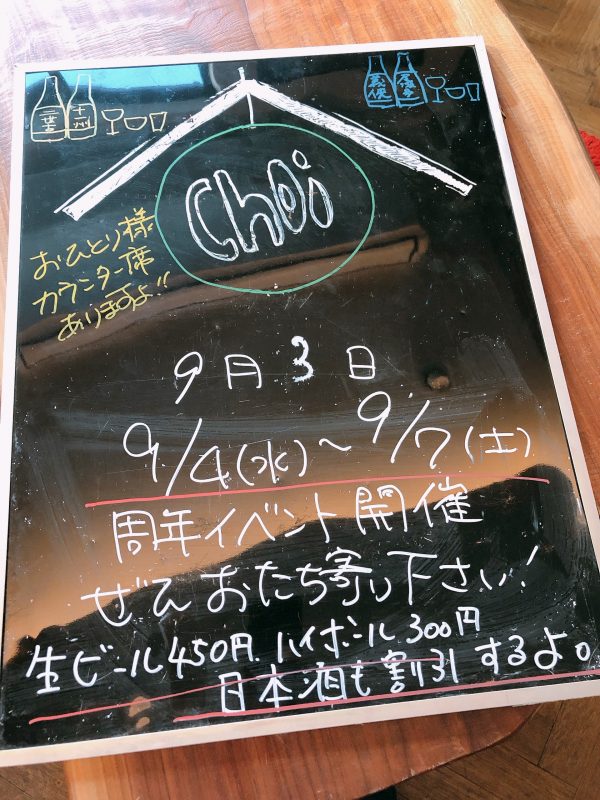 十州
Choi
おひとり様
カウンター席
ありますよ!!
9月3日
9/4(水)~9/7(土)
周年イベント開催
ぜひおたち寄り下さい!
生ビール450円.ハイボール300円
日本酒も割引するよ。